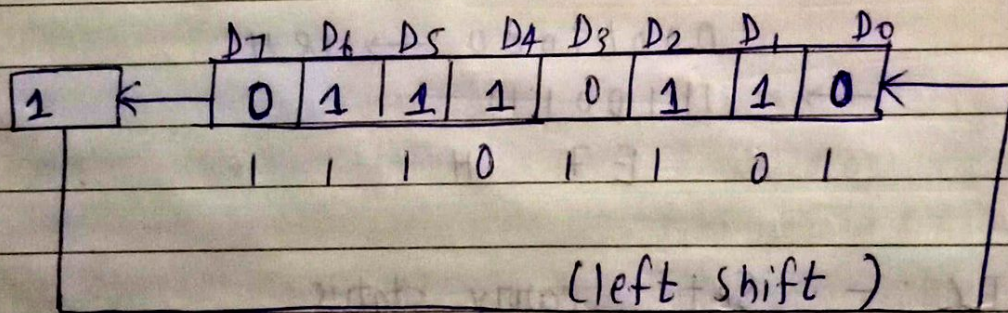 D7 D6 D5 D4 D3 D2 D1 D0
1 0 1 1 1 0 1 1 0
1 1 1 0 1 1 0 1
(left shift)